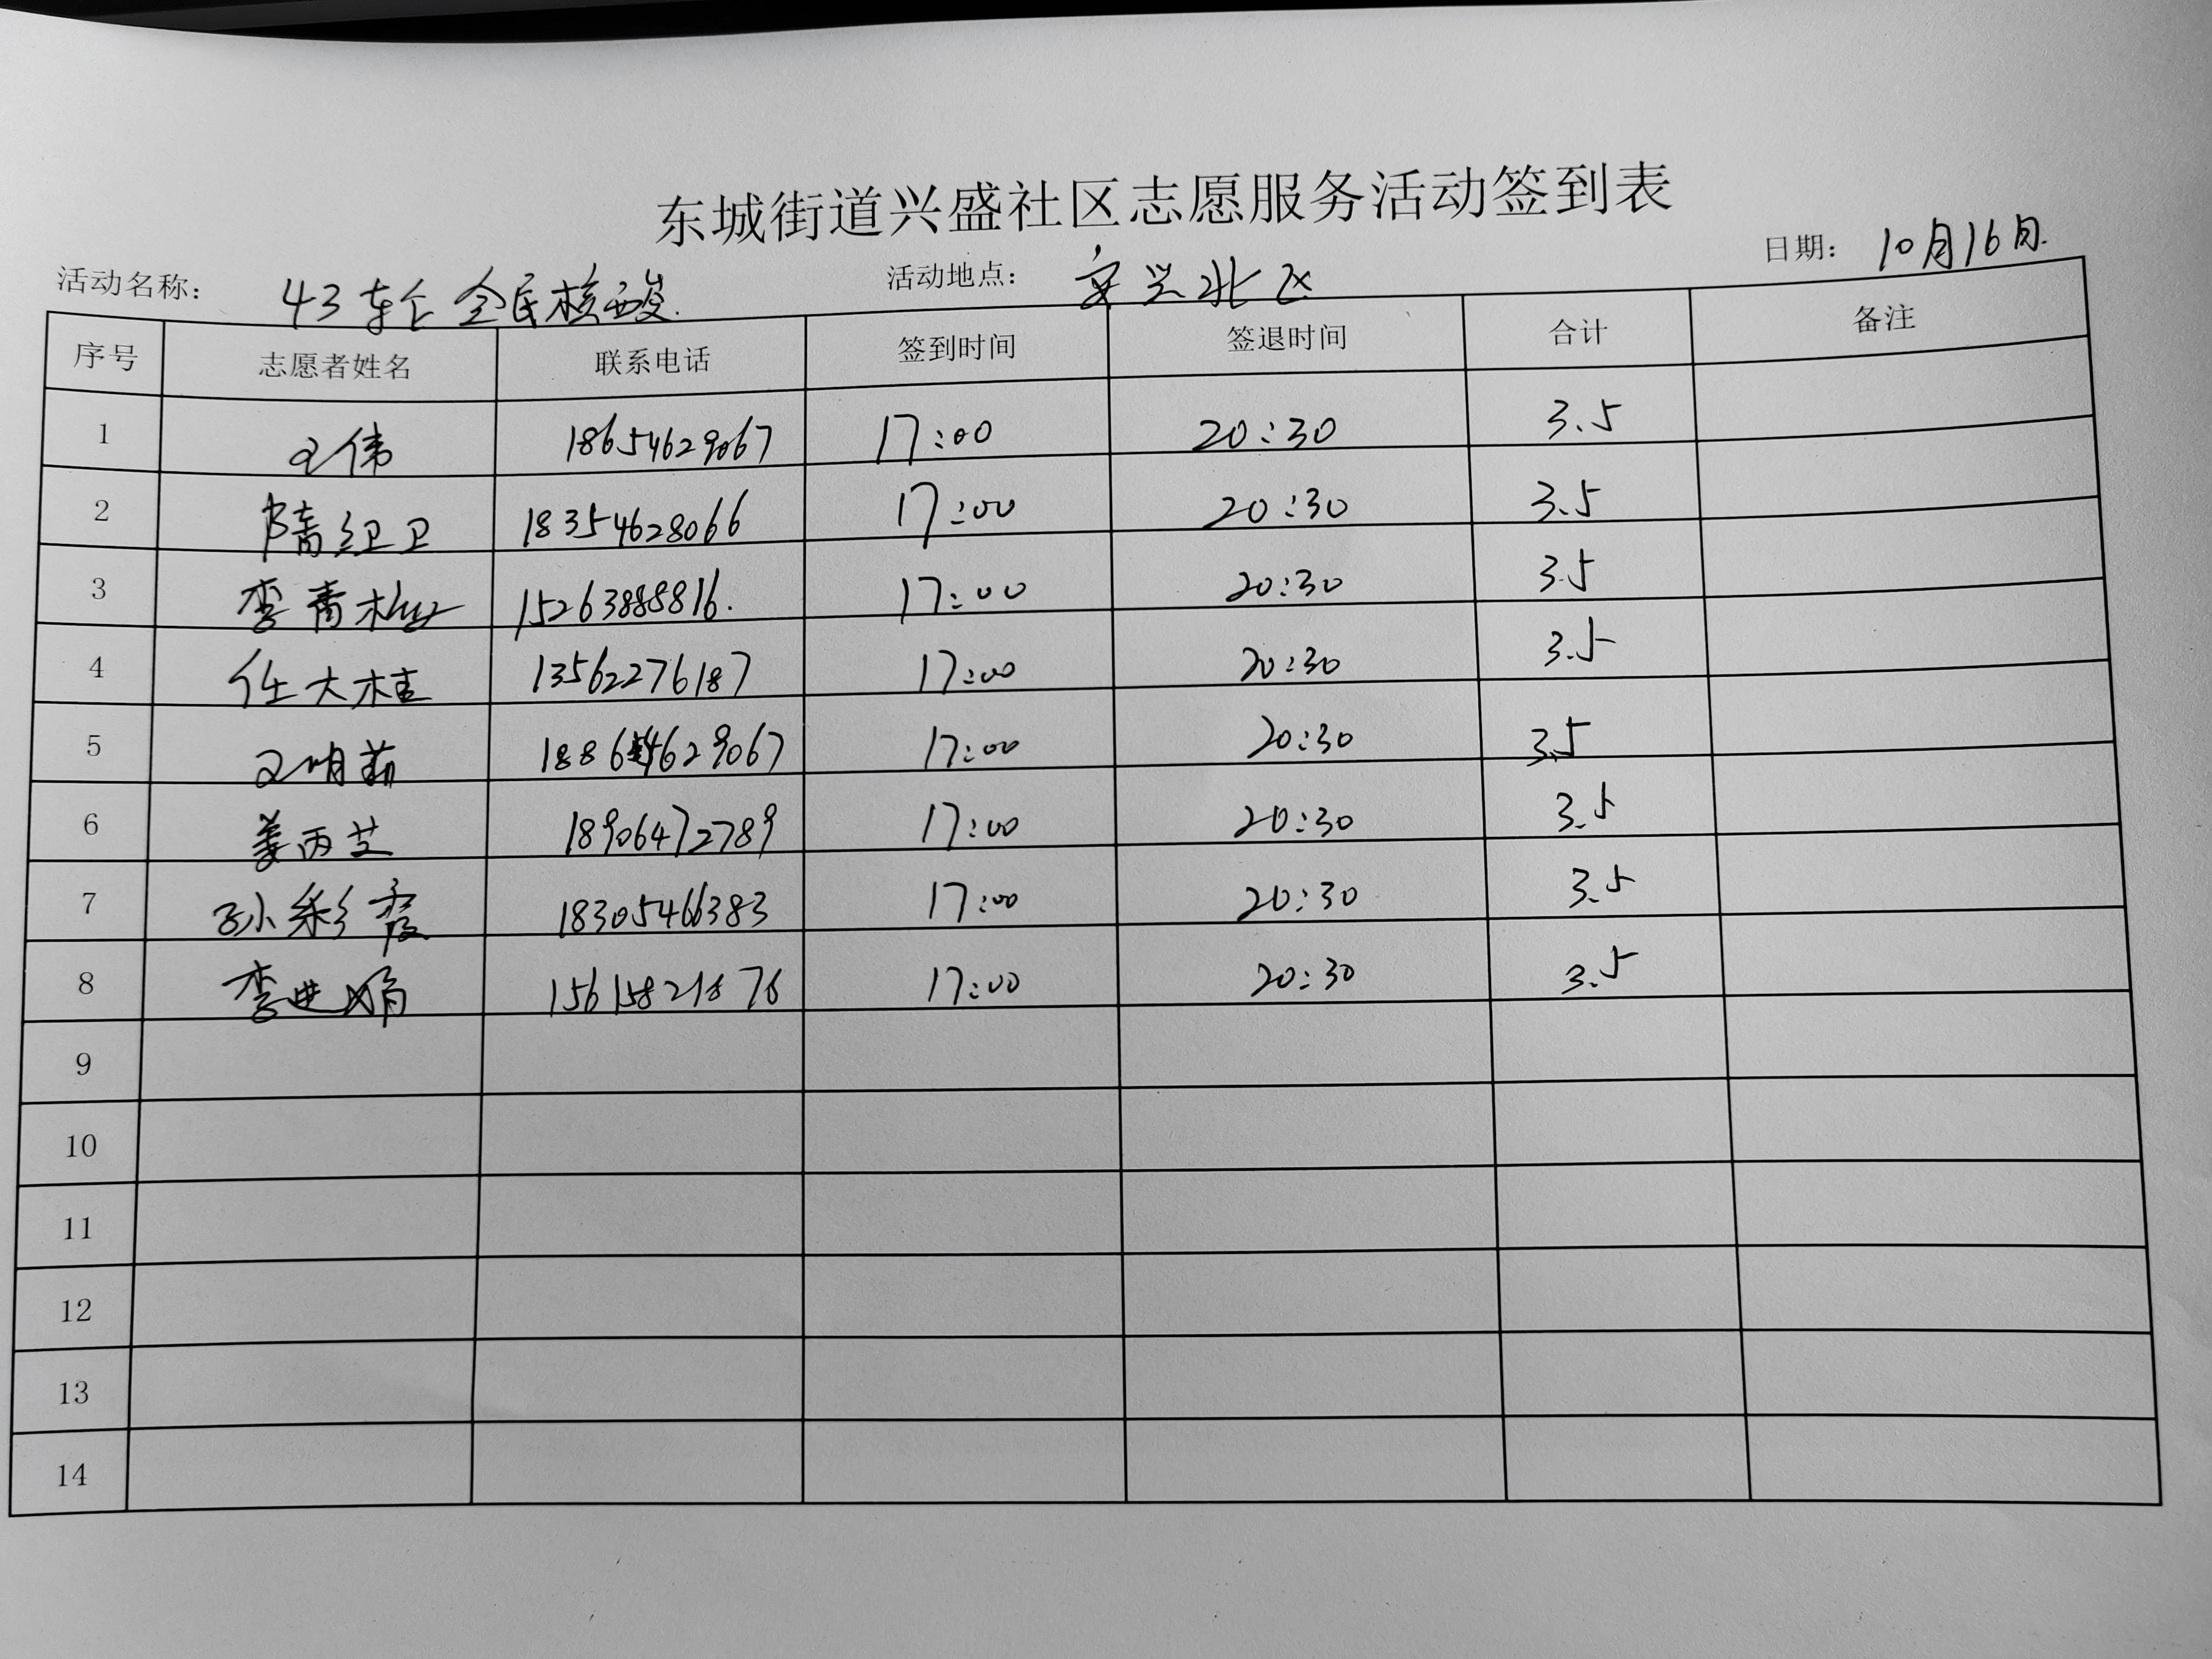 东城街道兴盛社区志愿服务活动签到表
活动名称： 43轮全民核酸. 活动地点： 安兴北区 日期： 10月16日.
序号 志愿者姓名 联系电话 签到时间 签退时间 合计 备注
1 王伟 18654629067 17:00 20:30 3.5
2 隋红卫 18354628066 17:00 20:30 3.5
3 李青 15263888816. 17:00 20:30 3.5
4 任大桂 13562276187 17:00 20:30 3.5
5 王明 17:00 20:30 3.5
6 姜丙芝 18906472789 17:00 20:30 3.5
7 孙彩霞 18305466383 17:00 20:30 3.5
8 李进娟 15615821676 17:00 20:30 3.5
9
10
11
12
13
14